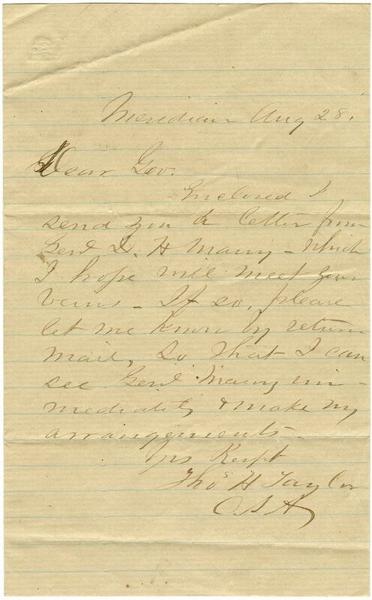 Meridian Aug 28.
Dear Gov:
Enclosed I
send you a letter from
Genl D. H Maury - Which
I hope will meet your
views - If so, please
let me know by return
mail, So that I can
see Genl Maury im-
mediately & make my
arrangements -
yrs Respt
Thos H Taylor
CSA